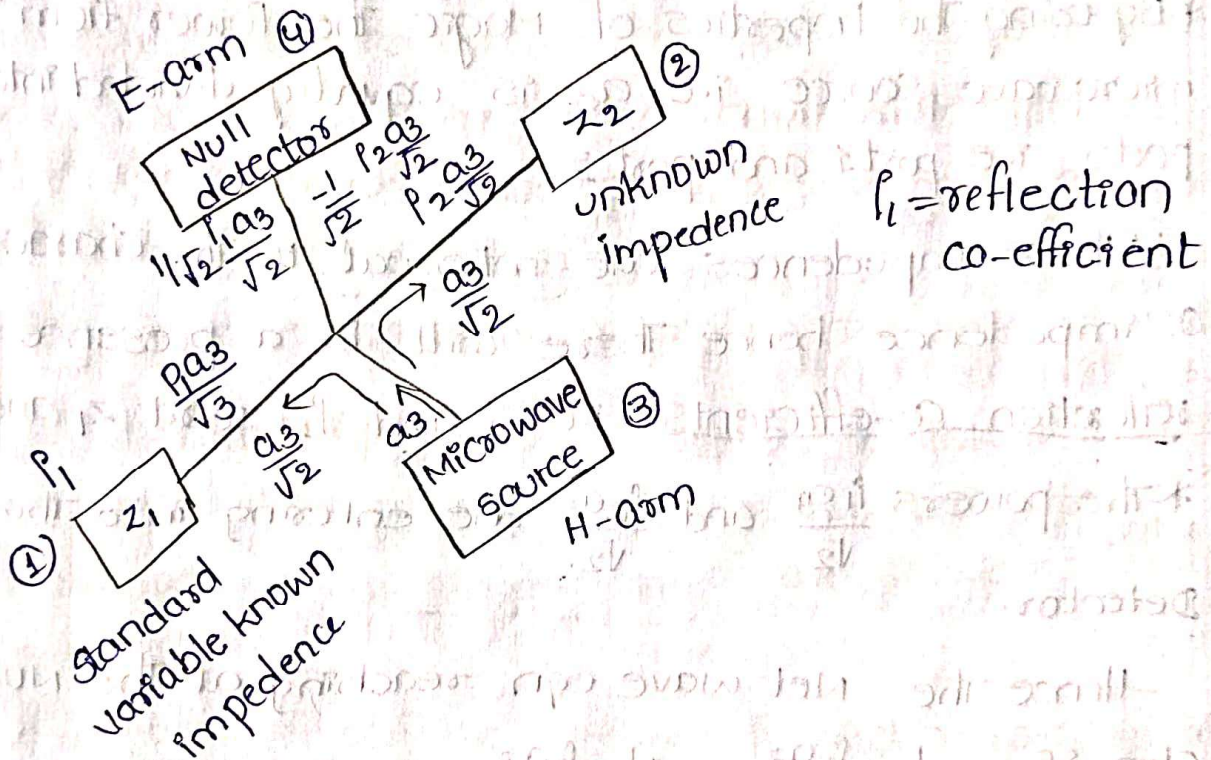 E-arm ④
Null
detector
1/√2 ρ₁a3/√2
-1/√2 ρ₂a3/√2
ρ₂ a3/√2
Z2
②
unknown
impedence
ρ₁ = reflection
co-efficient
a3/√2
ρ₁a3/√3
a3/√2
a3
Microwave
source
③
H-arm
ρ₁
Z1
①
Standard
variable known
impedence